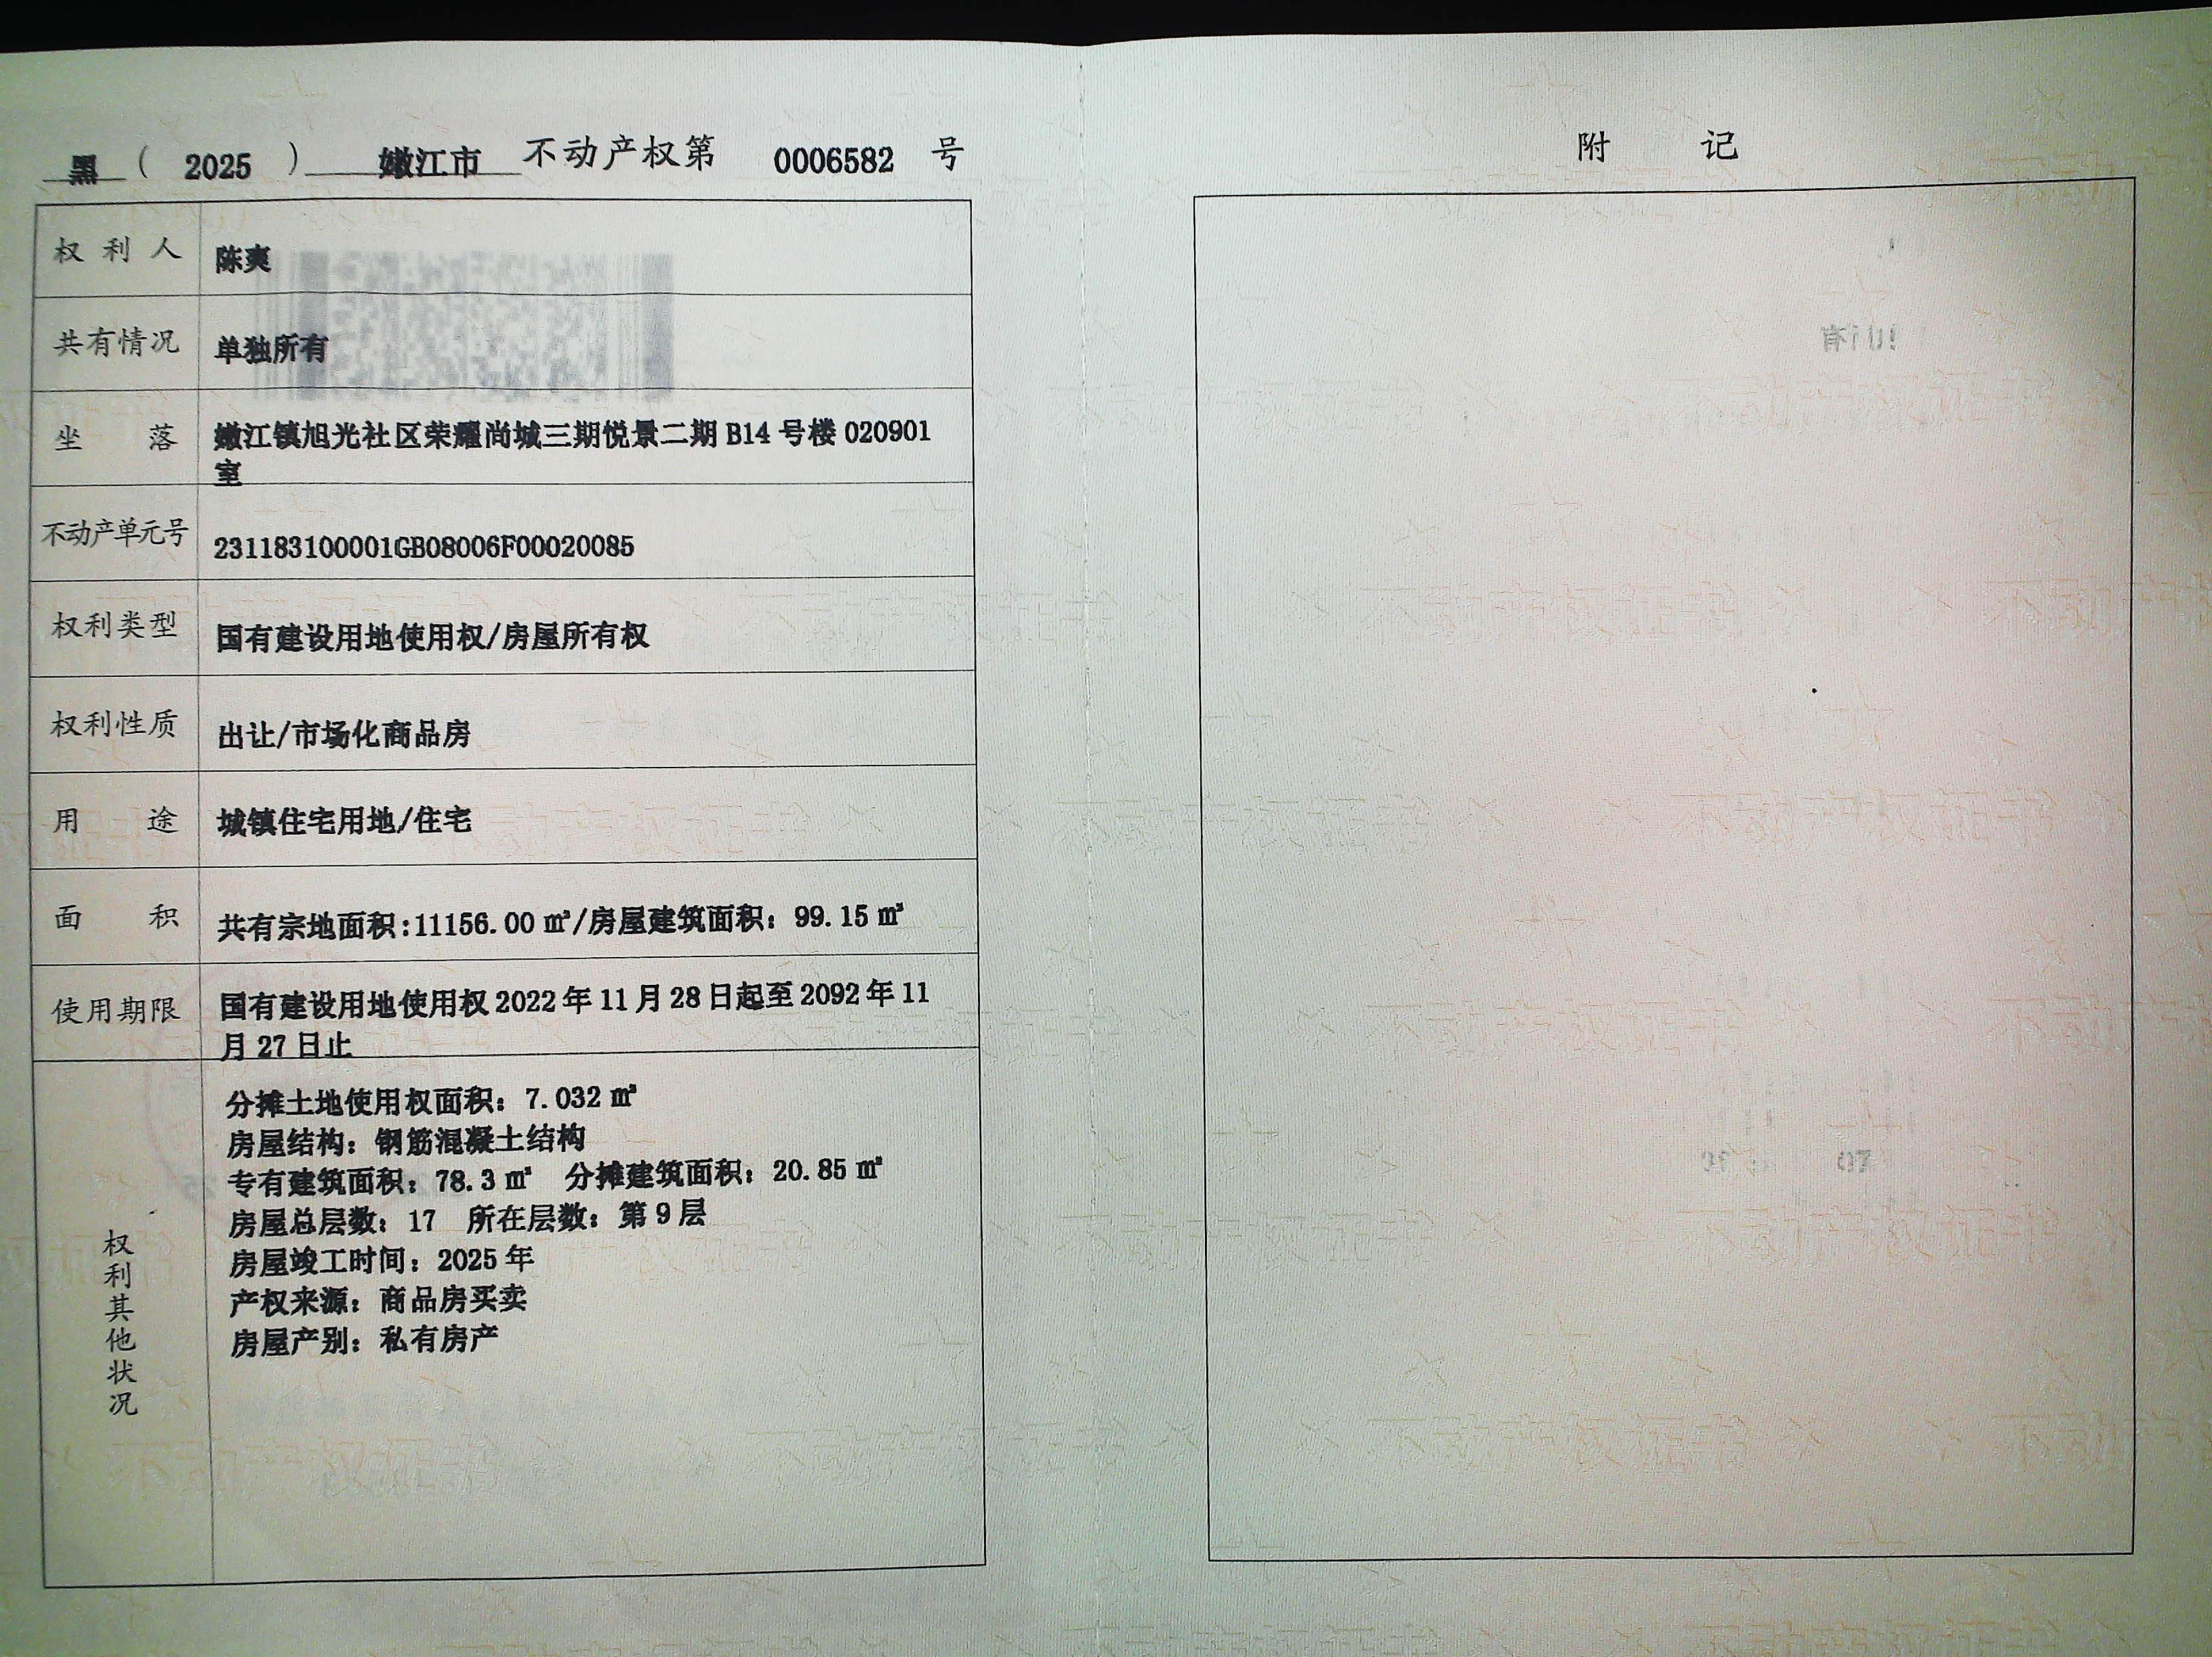 黑（2025）嫩江市不动产权第 0006582 号
权利人 陈爽
共有情况 单独所有
坐落 嫩江镇旭光社区荣耀尚城三期悦景二期 B14 号楼 020901
室
不动产单元号 231183100001GB08006F00020085
权利类型 国有建设用地使用权/房屋所有权
权利性质 出让/市场化商品房
用途 城镇住宅用地/住宅
面积 共有宗地面积:11156.00 ㎡/房屋建筑面积：99.15 ㎡
使用期限 国有建设用地使用权 2022 年 11 月 28 日起至 2092 年 11
月 27 日止
权利其他状况
分摊土地使用权面积：7.032 ㎡
房屋结构：钢筋混凝土结构
专有建筑面积：78.3 ㎡ 分摊建筑面积：20.85 ㎡
房屋总层数：17 所在层数：第 9 层
房屋竣工时间：2025 年
产权来源：商品房买卖
房屋产别：私有房产
附记